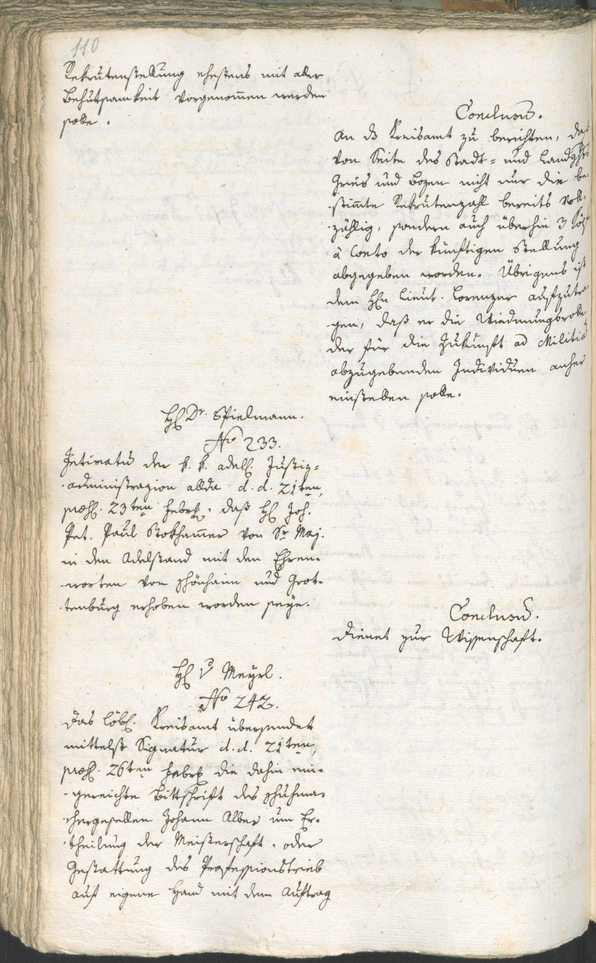 110
Rekrutenstellung ehestens mit aller
Behutsamkeit vorgenommen werden
solle.
Conclusum.
An das Kreisamt zu berichten, daß
von Seite des Stadt- und Landgchts
Gries und Bozen nicht nur die be-
stimmte Rekrutenzahl bereits voll-
zählig, sondern auch überhin 3 Köpf
à Conto der künftigen Stellung
abgegeben worden. Übrigens ist
dem Hhn Lieut. Lorenzer aufzutra-
gen, daß er die Widmungsrolle
der für die Zukunft ad Militia
abzugebenden Individuen anher
einstellen solle.
Hh Dr. Spielmann.
No 233.
Intimatum der k. k. adelh. Justiz-
administrazion allda d. d. 21ten,
præs. 23ten Febr., daß Hh Joh.
Pet. Paul Stokhamer von Sr Maj.
in den Adelstand mit den Ehren-
worten von Schönhaim und Grot-
tenburg erhoben worden seye.
Conclusum.
Dienet zur Wissenschaft.
Hh v Mayrl.
No 242.
Das Löbl. Kreisamt übersendet
mittelst Signatur d. d. 21ten,
præs. 26ten Febr. die dahin ein-
gereichte Bittschrift des Schuhma-
chergesellen Johann Alber um Er-
theilung der Meisterschaft, oder
Gestattung des Professionstrieb
auf eigene Hand mit dem Auftrag